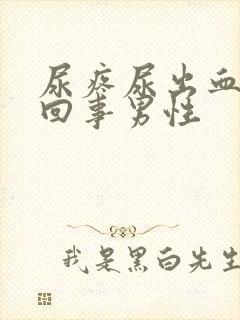 尿疼尿出血
回事男性
我是黑白先生